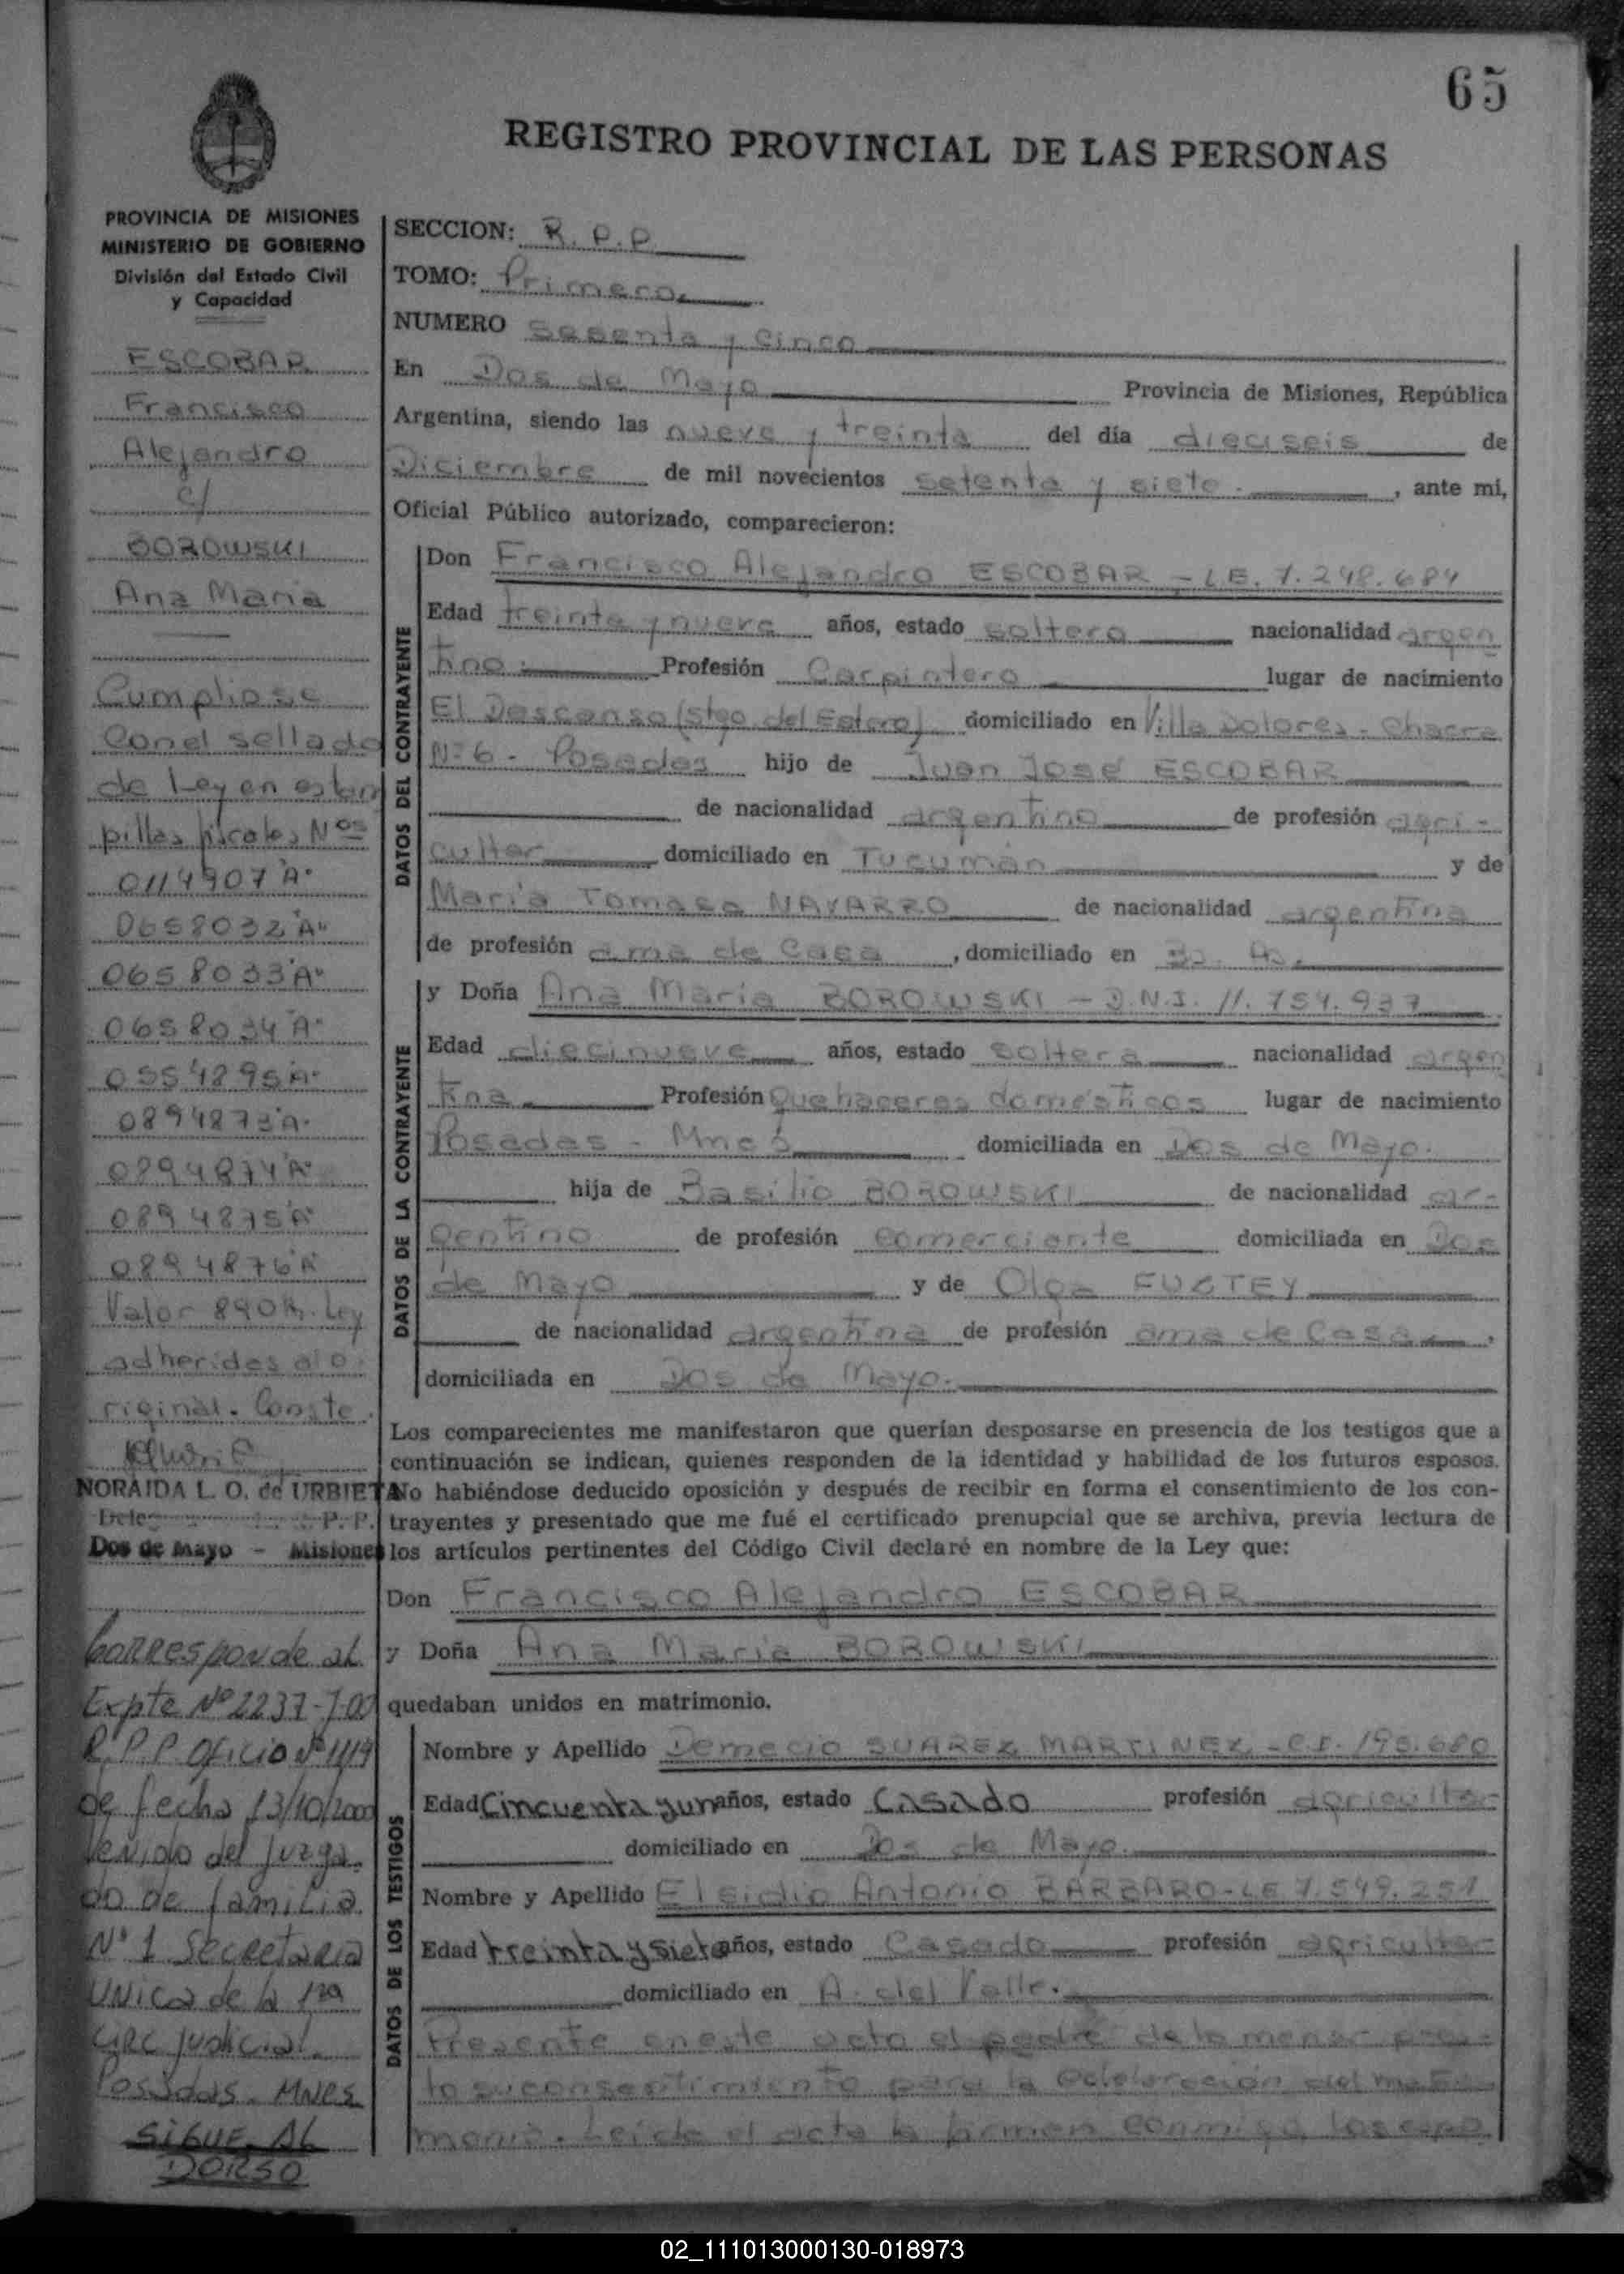 65
REGISTRO PROVINCIAL DE LAS PERSONAS
PROVINCIA DE MISIONES
MINISTERIO DE GOBIERNO
División del Estado Civil
y Capacidad
ESCOBAR
Francisco
Alejandro
c/
BOROWSKI
Ana Maria
Cumpliose
Con el sellado
de Ley en estam
pillas fiscales Nos
0114907 "A"
0658032 "A"
0658033 "A"
0658034 "A"
0554895 "A"
0894873 "A"
0894874 "A"
0894875 "A"
0894876 "A"
Valor 890 Ley
adheridas al o
riginal. Conste.
NORAIDA L. O. de URBIETA
P. P.
Dos de Mayo - Misiones
Corresponde al
Expte Nº 2237-J-00
R.P.P Oficio Nº 1119
de fecha 13/10/2000
Venido del Juzga
do de familia
Nº 1 Secretaria
UNica de la 1ra
CIRC Judicial.
Posadas. MNES
SIGUE AL
DORSO
SECCION: R. P. P.
TOMO: Primero
NUMERO Sesenta y Cinco
En Dos de Mayo Provincia de Misiones, República
Argentina, siendo las nueve y treinta del día dieciseis de
Diciembre de mil novecientos setenta y siete , ante mi,
Oficial Público autorizado, comparecieron:
DATOS DEL CONTRAYENTE
Don Francisco Alejandro ESCOBAR - L.E. 7.248.684
Edad treinta y nueve años, estado soltero nacionalidad argen
tino. Profesión Carpintero lugar de nacimiento
El Descanso (Stgo. del Estero) domiciliado en Villa Dolores - Chacra
Nº 6 - Posadas hijo de Juan José ESCOBAR
de nacionalidad argentino de profesión agri-
cultor domiciliado en Tucumán y de
María Tomasa NAVARRO de nacionalidad argentina
de profesión ama de Casa , domiciliado en Bs. As.
DATOS DE LA CONTRAYENTE
y Doña Ana María BOROWSKI - D.N.I. 11.754.937
Edad diecinueve años, estado soltera nacionalidad argen
tina Profesión Quehaceres domésticos lugar de nacimiento
Posadas - Mnes domiciliada en Dos de Mayo.
hija de Basilio BOROWSKI de nacionalidad ar-
gentino de profesión comerciante domiciliada en Dos
de Mayo y de Olga FUSTEY
de nacionalidad argentina de profesión ama de Casa ,
domiciliada en Dos de Mayo.
Los comparecientes me manifestaron que querían desposarse en presencia de los testigos que a
continuación se indican, quienes responden de la identidad y habilidad de los futuros esposos.
No habiéndose deducido oposición y después de recibir en forma el consentimiento de los con-
trayentes y presentado que me fué el certificado prenupcial que se archiva, previa lectura de
los artículos pertinentes del Código Civil declaré en nombre de la Ley que:
Don Francisco Alejandro ESCOBAR
y Doña Ana Maria BOROWSKI
quedaban unidos en matrimonio.
DATOS DE LOS TESTIGOS
Nombre y Apellido Demecio SUAREZ MARTINEZ - C.I. 195.680
Edad Cincuenta y un años, estado Casado profesión agricultor
domiciliado en Dos de Mayo.
Nombre y Apellido Elsidio Antonio BARBARO - LE 7.549.251
Edad treinta y siete años, estado Casado profesión agricultor
domiciliado en A. del Valle.
Presente en este acto el padre de la menor pres-
ta su consentimiento para la celebración del matri
monio. Leída el acta la firman conmigo los espo
02_111013000130-018973